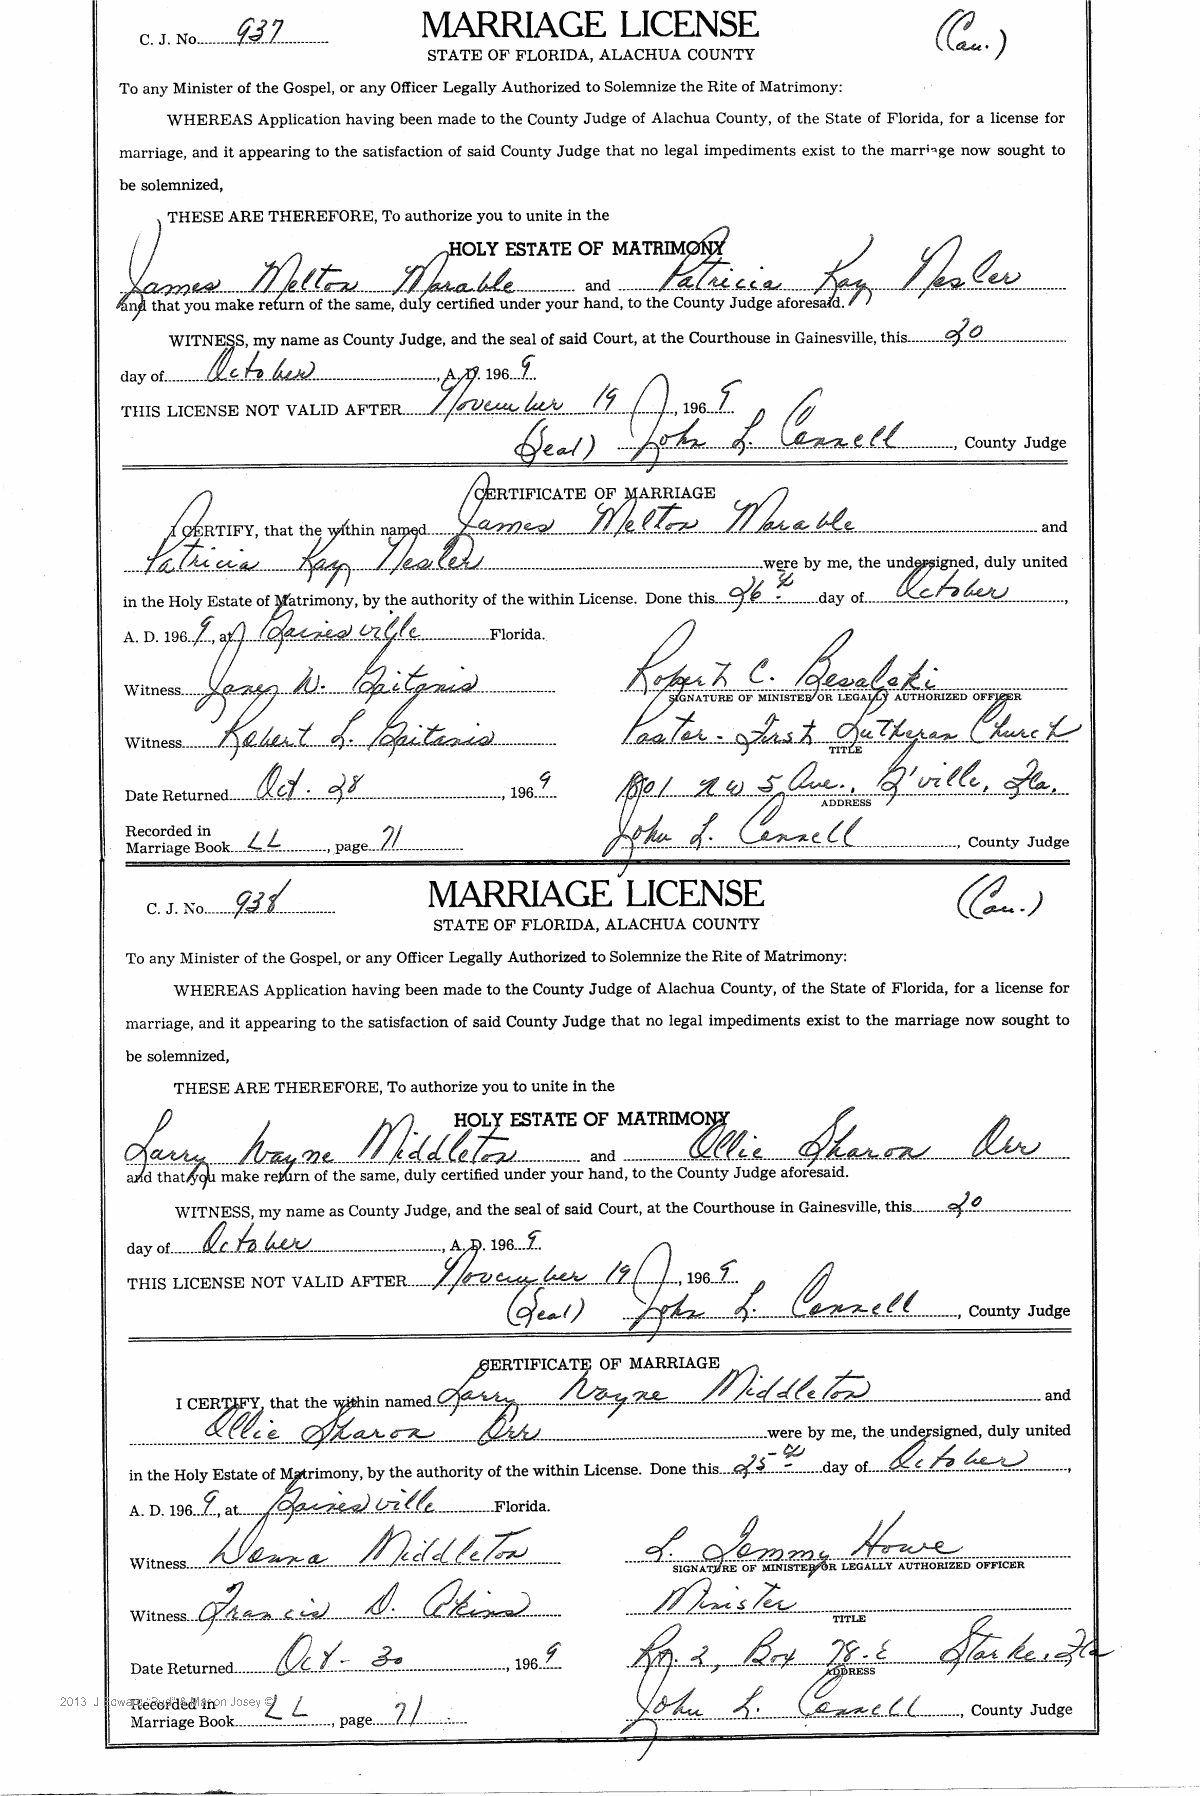 C. J. No. 937 MARRIAGE LICENSE (Cau.)
STATE OF FLORIDA, ALACHUA COUNTY
To any Minister of the Gospel, or any Officer Legally Authorized to Solemnize the Rite of Matrimony:
WHEREAS Application having been made to the County Judge of Alachua County, of the State of Florida, for a license for
marriage, and it appearing to the satisfaction of said County Judge that no legal impediments exist to the marriage now sought to
be solemnized,
THESE ARE THEREFORE, To authorize you to unite in the
HOLY ESTATE OF MATRIMONY
James Melton Marable and Patricia Kay Nesler
and that you make return of the same, duly certified under your hand, to the County Judge aforesaid.
WITNESS, my name as County Judge, and the seal of said Court, at the Courthouse in Gainesville, this 20
day of October, A. D. 1969.
THIS LICENSE NOT VALID AFTER November 19, 1969
(Seal) John L. Connell, County Judge
CERTIFICATE OF MARRIAGE
I CERTIFY, that the within named James Melton Marable and
Patricia Kay Nesler were by me, the undersigned, duly united
in the Holy Estate of Matrimony, by the authority of the within License. Done this 26th day of October,
A. D. 1969, at Gainesville Florida.
Witness Janey W. Gaitanis Robert C. Besalski
SIGNATURE OF MINISTER OR LEGALLY AUTHORIZED OFFICER
Witness Robert L. Gaitanis Pastor - First Lutheran Church
TITLE
Date Returned Oct. 28, 1969 1801 NW 5 Ave., G'ville, Fla.
ADDRESS
Recorded in
Marriage Book LL, page 71 John L. Connell, County Judge
C. J. No. 938 MARRIAGE LICENSE (Cau.)
STATE OF FLORIDA, ALACHUA COUNTY
To any Minister of the Gospel, or any Officer Legally Authorized to Solemnize the Rite of Matrimony:
WHEREAS Application having been made to the County Judge of Alachua County, of the State of Florida, for a license for
marriage, and it appearing to the satisfaction of said County Judge that no legal impediments exist to the marriage now sought to
be solemnized,
THESE ARE THEREFORE, To authorize you to unite in the
HOLY ESTATE OF MATRIMONY
Larry Wayne Middleton and Ollie Sharon Orr
and that you make return of the same, duly certified under your hand, to the County Judge aforesaid.
WITNESS, my name as County Judge, and the seal of said Court, at the Courthouse in Gainesville, this 20
day of October, A. D. 1969.
THIS LICENSE NOT VALID AFTER November 19, 1969
(Seal) John L. Connell, County Judge
CERTIFICATE OF MARRIAGE
I CERTIFY, that the within named Larry Wayne Middleton and
Ollie Sharon Orr were by me, the undersigned, duly united
in the Holy Estate of Matrimony, by the authority of the within License. Done this 25th day of October,
A. D. 1969, at Gainesville Florida.
Witness Donna Middleton L. Jemmy Howe
SIGNATURE OF MINISTER OR LEGALLY AUTHORIZED OFFICER
Witness Francis D. Akins Minister
TITLE
Date Returned Oct - 30, 1969 Rt. 2, Box 78-E Starke, Fla
ADDRESS
Recorded in
Marriage Book LL, page 71 John L. Connell, County Judge